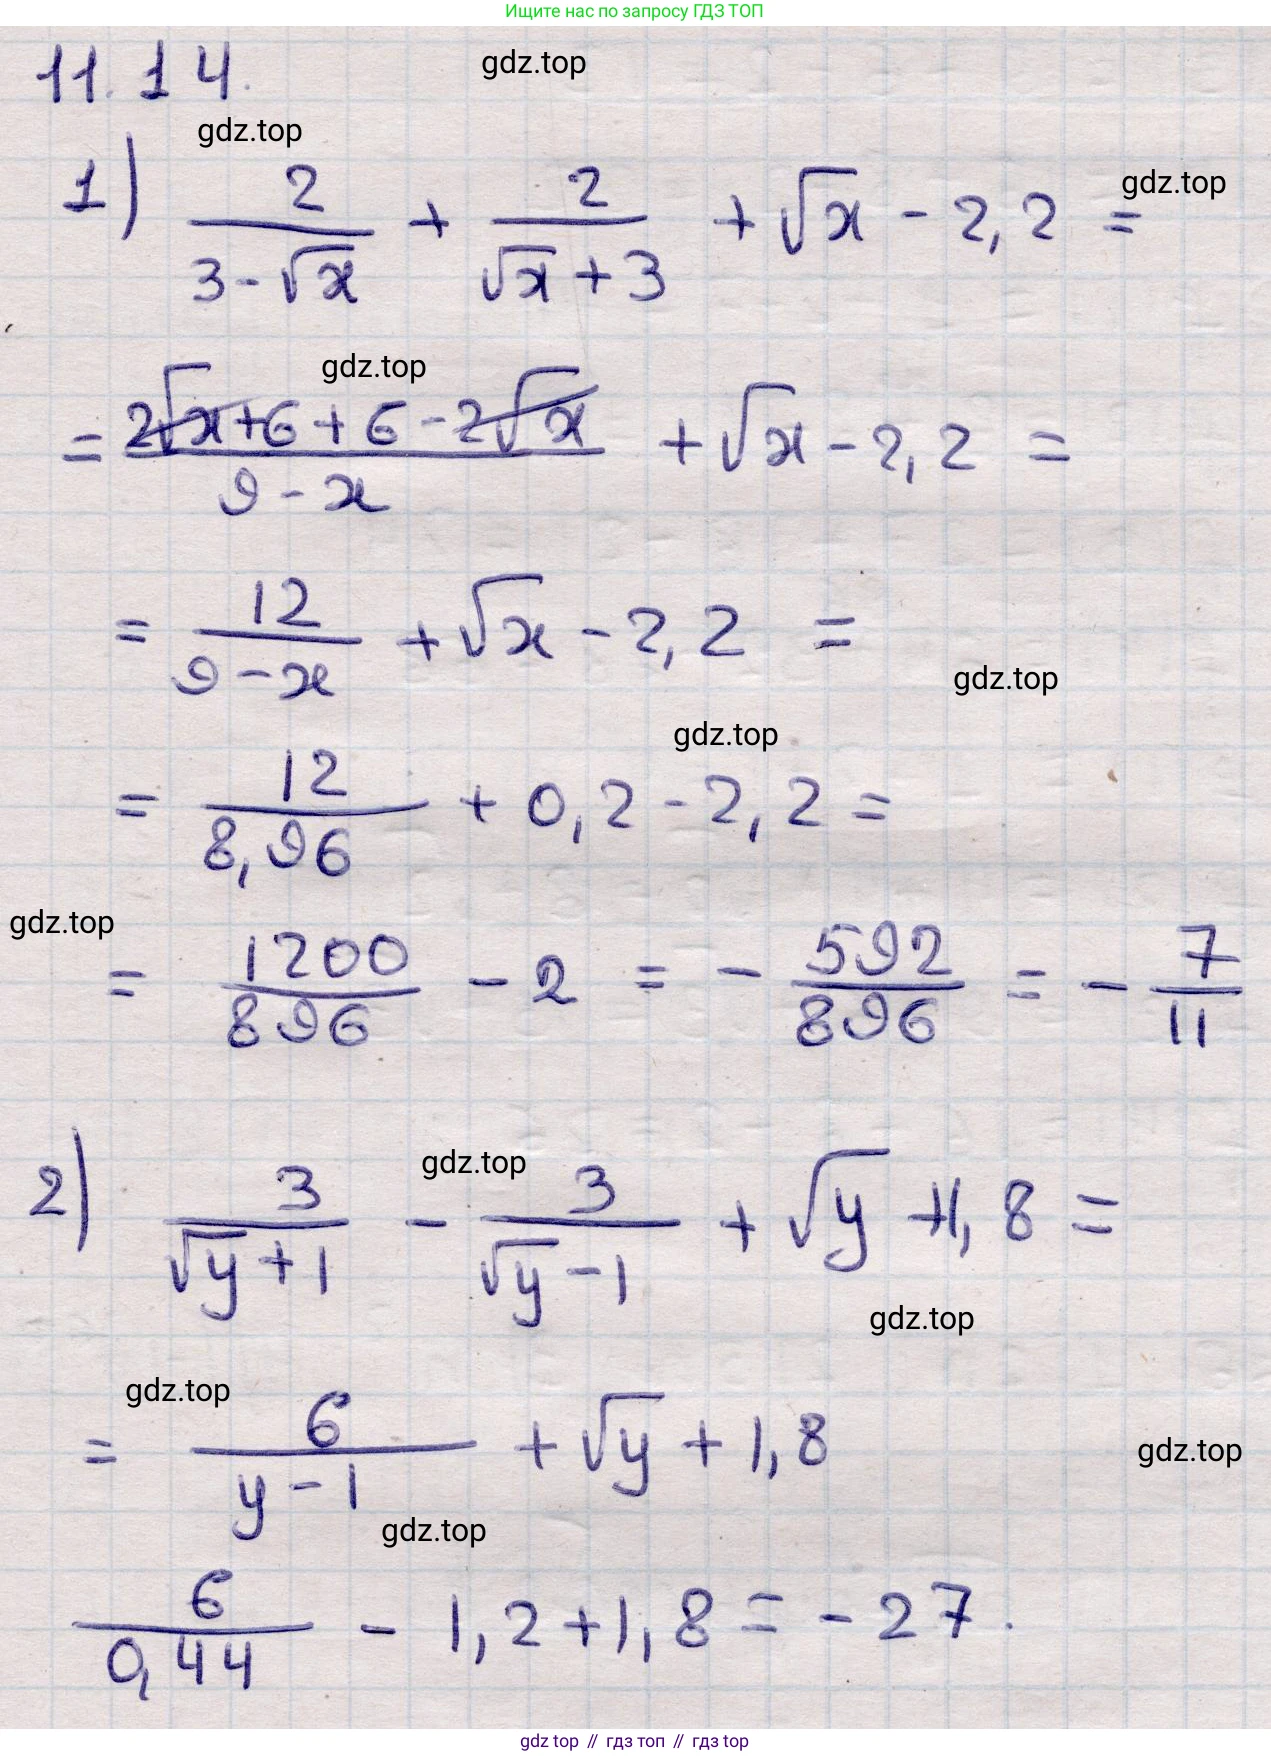 Ищите нас по запросу ГДЗ ТОП
11.14.
gdz.top
gdz.top
1) 2/(3-√x) + 2/(√x+3) + √x - 2,2 =
gdz.top
gdz.top
= (2√x+6+6-2√x)/(9-x) + √x - 2,2 =
= 12/(9-x) + √x - 2,2 =
gdz.top
gdz.top
= 12/8,96 + 0,2 - 2,2 =
gdz.top
= 1200/896 - 2 = - 592/896 = - 7/11
gdz.top
2) 3/(√y+1) - 3/(√y-1) + √y + 1,8 =
gdz.top
gdz.top
= 6/(y-1) + √y + 1,8
gdz.top
gdz.top
6/0,44 - 1,2 + 1,8 = - 27.
gdz.top // гдз топ // гдз top